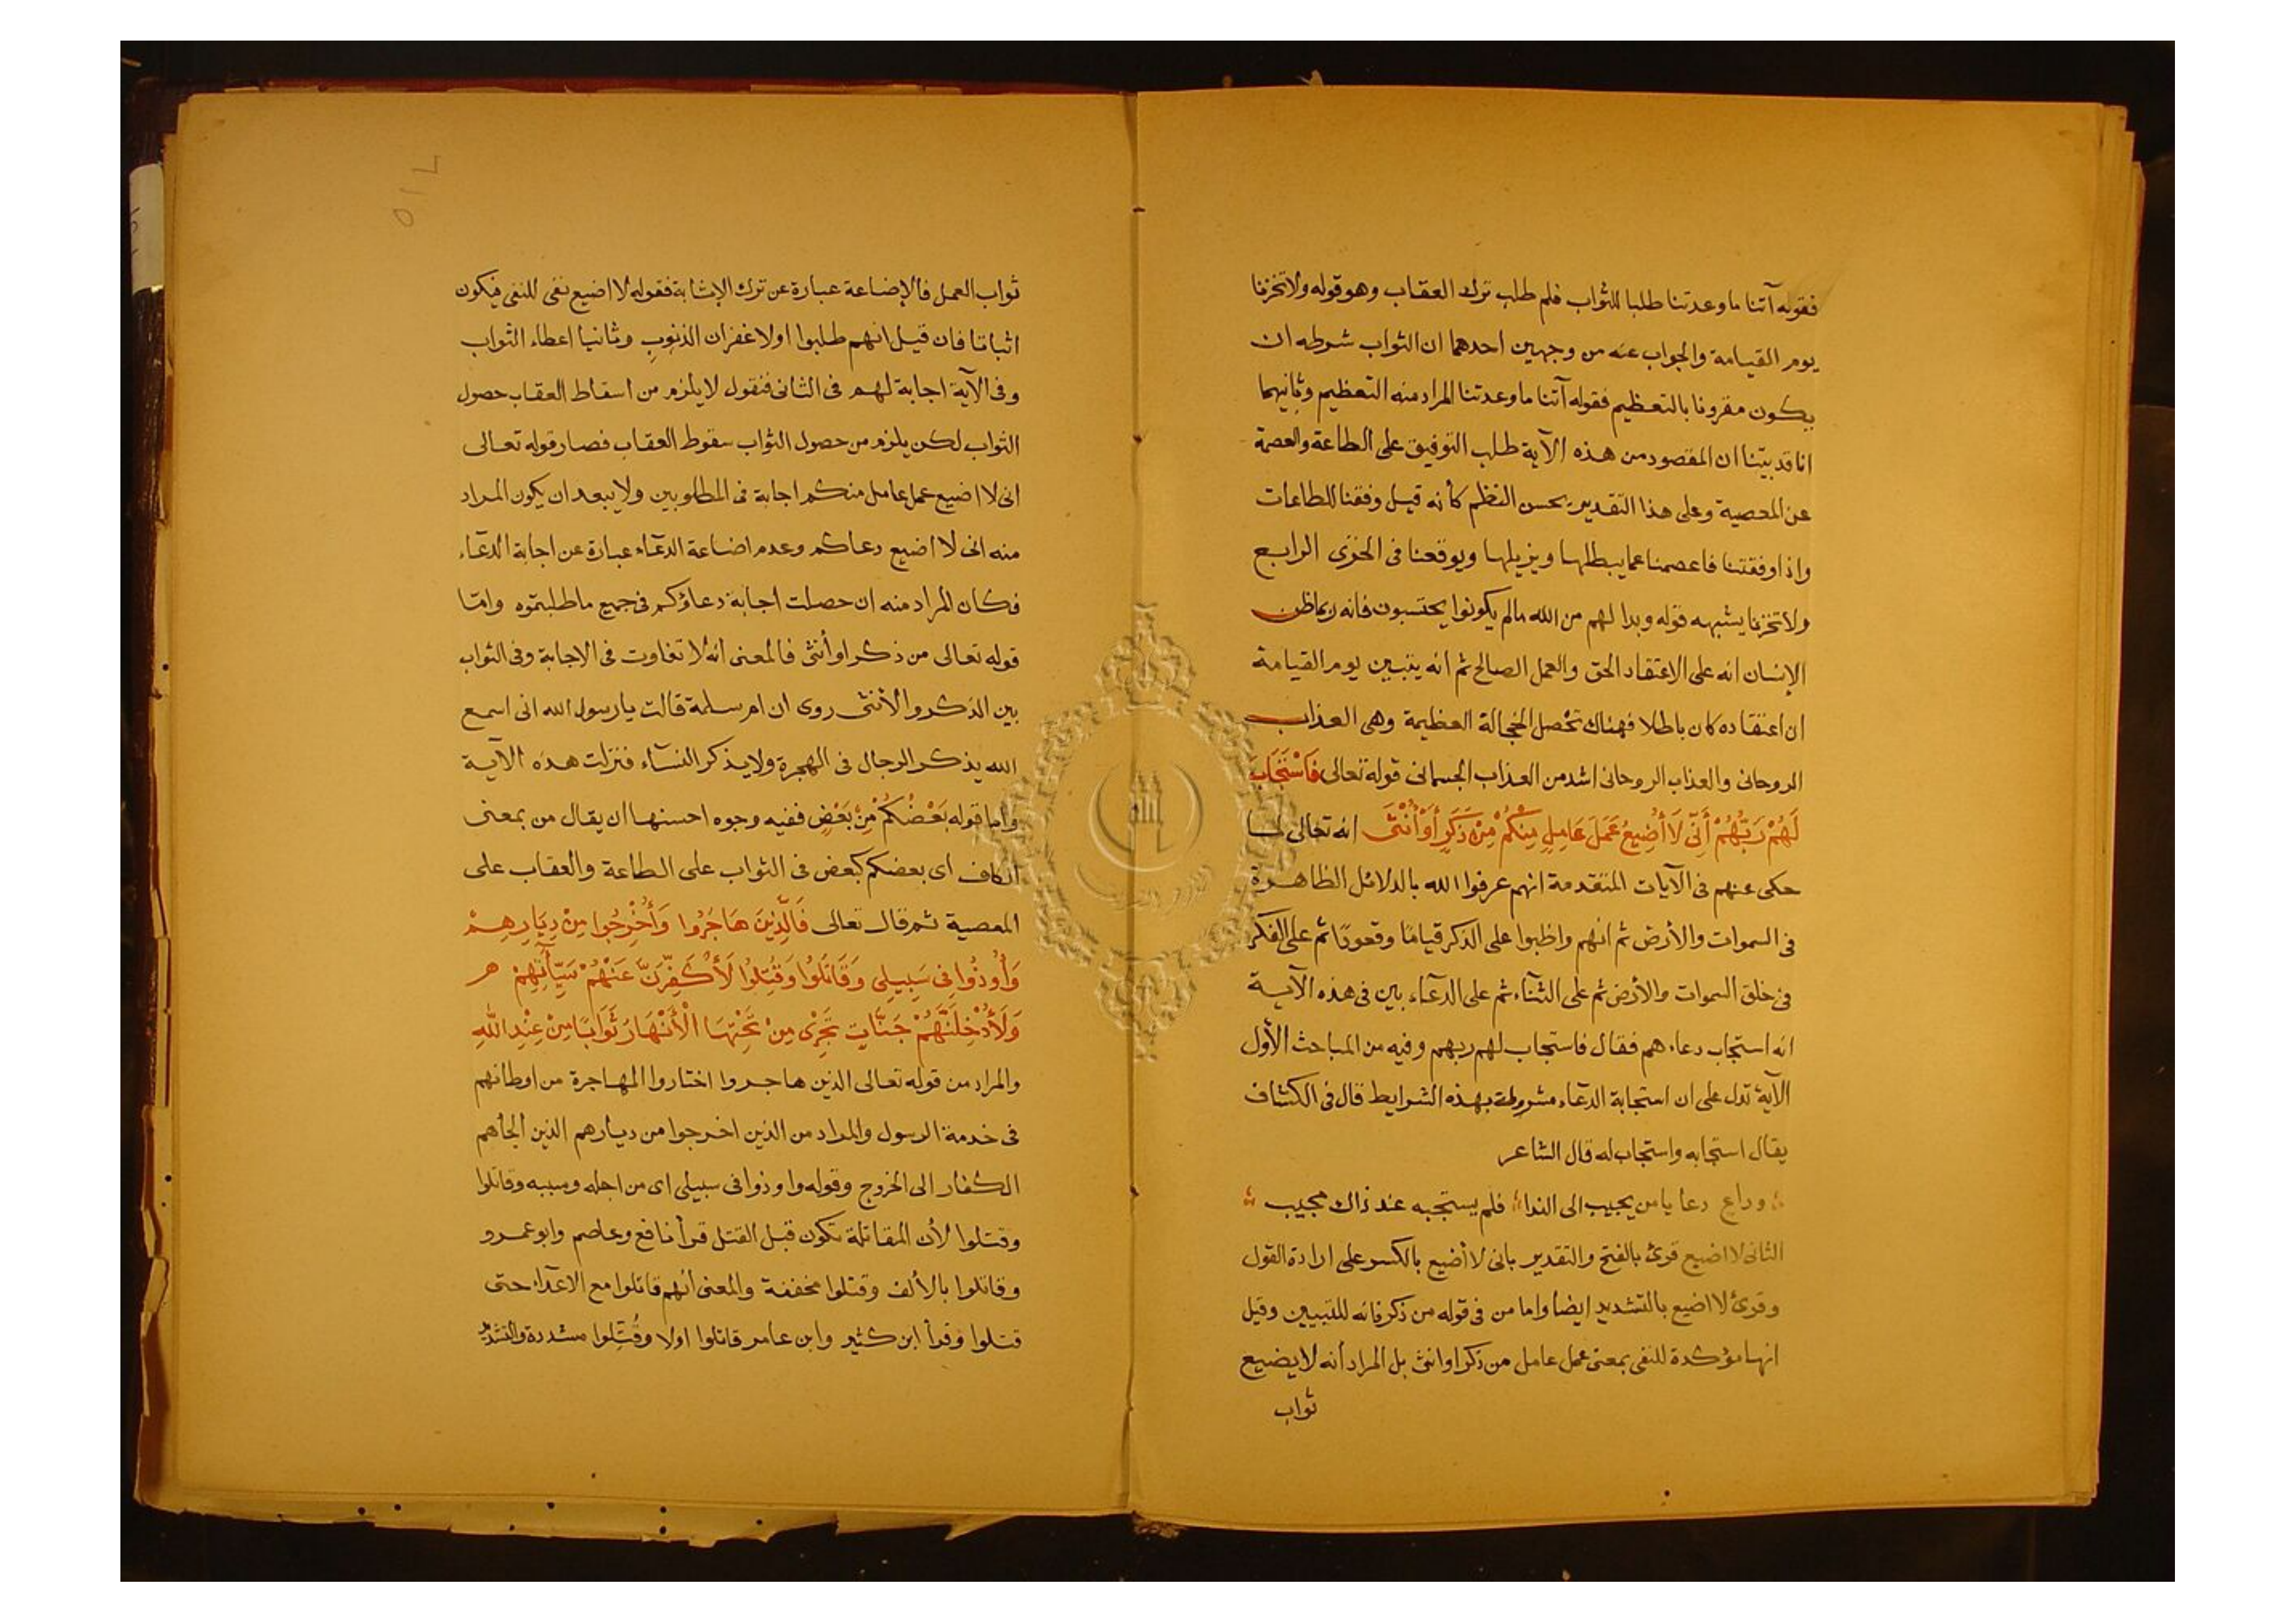 فقوله آتنا ما وعدتنا طلبا للثواب فلم طلب ترك العقاب وهو قوله ولا تخزنا
يوم القيامة والجواب عنه من وجهين احدهما ان الثواب شرطه ان
يكون مقرونا بالتعظيم فقوله آتنا ما وعدتنا المراد منه التعظيم وثانيهما
انا قد بيّنا ان المقصود من هذه الآية طلب التوفيق على الطاعة والعصمة
عن المعصية وعلى هذا التقدير يحسن النظم كأنه قيل وفقنا للطاعات
واذا وفقتنا فاعصمنا عما يبطلها ويزيلها ويوقعنا فى الخزى الرابع
ولا تخزنا يشبهه قوله وبدا لهم من الله ما لم يكونوا يحتسبون فانه ربما ظن
الإنسان انه على الاعتقاد الحق والعمل الصالح ثم انه يتبين يوم القيامة
ان اعتقاده كان باطلا فهناك تحصل الخجالة العظيمة وهى العذاب
الروحانى والعذاب الروحانى اشد من العذاب الجسمانى قوله تعالى فَاسْتَجَابَ
لَهُمْ رَبُّهُمْ أَنِّى لَا أُضِيعُ عَمَلَ عَامِلٍ مِنْكُمْ مِنْ ذَكَرٍ أَوْ أُنْثَى انه تعالى لما
حكى عنهم فى الآيات المتقدمة انهم عرفوا الله بالدلائل الظاهرة
فى السموات والأرض ثم انهم واظبوا على الذكر قيامًا وقعودًا ثم على الفكر
فى خلق السموات والأرض ثم على الثناء ثم على الدعآء بين فى هذه الآية
انه استجاب دعاءهم فقال فاستجاب لهم ربهم وفيه من المباحث الأول
الآية تدل على ان استجابة الدعآء مشروطة بهذه الشرايط قال فى الكشاف
يقال استجابه واستجاب له قال الشاعر
وداع دعا يا من يجيب الى الندا فلم يستجبه عند ذاك مجيب
الثانى لا اضيع قرئ بالفتح والتقدير بانى لا أضيع بالكسر على ارادة القول
وقرئ لا اضيع بالتشديد ايضا واما من فى قوله من ذكر فانه للتبيين وقيل
انها مؤكدة للنفى بمعنى عمل عامل من ذكر او انثى بل المراد أنه لا يضيع
ثواب
ثواب العمل فالإضاعة عبارة عن ترك الإثابة فقوله لا اضيع نفى للنفى فيكون
اثباتا فان قيل انهم طلبوا اولا غفران الذنوب وثانيا اعطاء الثواب
وفى الآية اجابة لهم فى الثانى فنقول لا يلزم من اسقاط العقاب حصول
الثواب لكن يلزم من حصول الثواب سقوط العقاب فصار قوله تعالى
انى لا اضيع عمل عامل منكم اجابة فى المطلوبين ولا يبعد ان يكون المراد
منه انى لا اضيع دعاكم وعدم اضاعة الدعآء عبارة عن اجابة الدعآء
فكان المراد منه ان حصلت اجابة دعاؤكم فى جميع ما طلبتموه وامّا
قوله تعالى من ذكر او أنثى فالمعنى انه لا تفاوت فى الاجابة وفى الثواب
بين الذكر والأنثى روى ان ام سلمة قالت يا رسول الله انى اسمع
الله يذكر الرجال فى الهجرة ولا يذكر النسآء فنزلت هذه الآية
واما قوله بَعْضُكُمْ مِنْ بَعْضٍ ففيه وجوه احسنها ان يقال من بمعنى
الكاف اى بعضكم كبعض فى الثواب على الطاعة والعقاب على
المعصية ثم قال تعالى فَالَّذِينَ هَاجَرُوا وَأُخْرِجُوا مِنْ دِيَارِهِمْ
وَأُوذُوا فِى سَبِيلِى وَقَاتَلُوا وَقُتِلُوا لَأُكَفِّرَنَّ عَنْهُمْ سَيِّآتِهِمْ هر
وَلَأُدْخِلَنَّهُمْ جَنَّاتٍ تَجْرِى مِنْ تَحْتِهَا الْأَنْهَارُ ثَوَابًا مِنْ عِنْدِ اللهِ
والمراد من قوله تعالى الذين هاجروا اختاروا المهاجرة من اوطانهم
فى خدمة الرسول والمراد من الذين اخرجوا من ديارهم الذين الجأهم
الكفار الى الخروج وقوله واوذوا فى سبيلى اى من اجله وسببه وقاتلوا
وقتلوا لأن المقاتلة تكون قبل القتل قرأ نافع وعاصم وابو عمرو
وقاتلوا بالألف وقتلوا مخففة والمعنى أنهم قاتلوا مع الاعدآء حتى
قتلوا وقرأ ابن كثير وابن عامر قاتلوا اولا وقُتِّلوا مشددة والتشديد